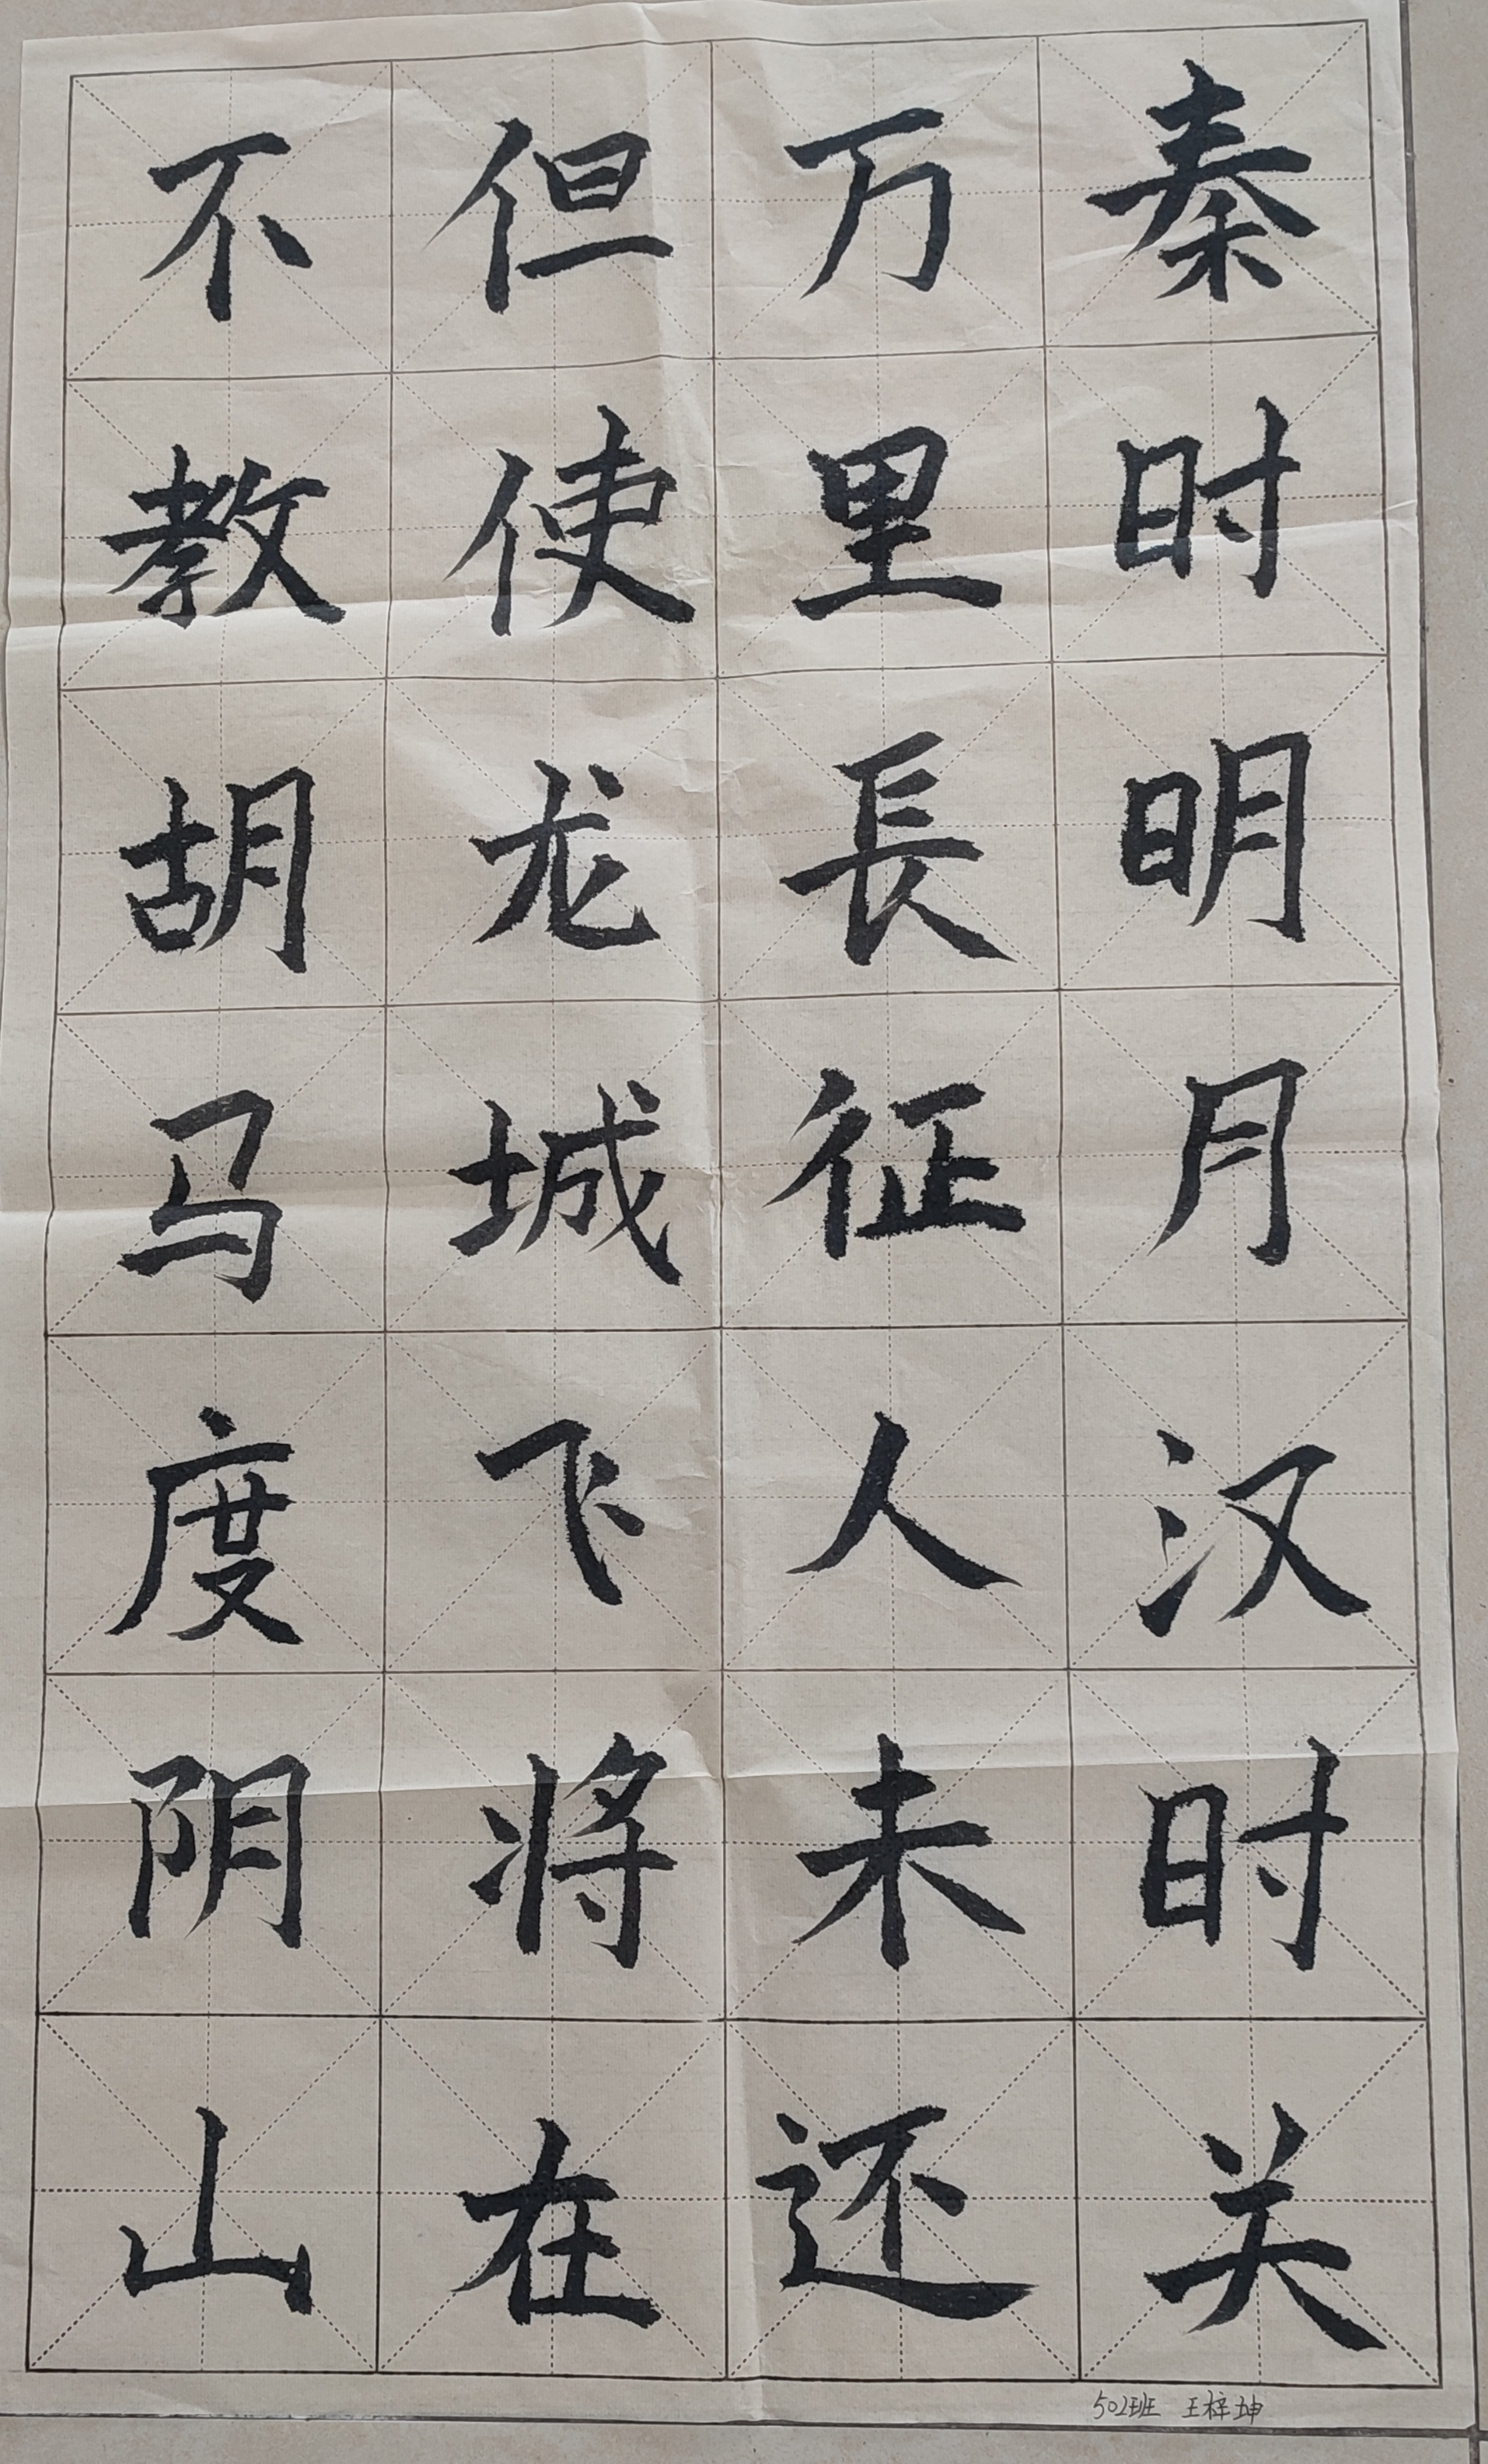 秦时明月汉时关
万里長征人未还
但使龙城飞将在
不教胡马度阴山
502班 王梓坤